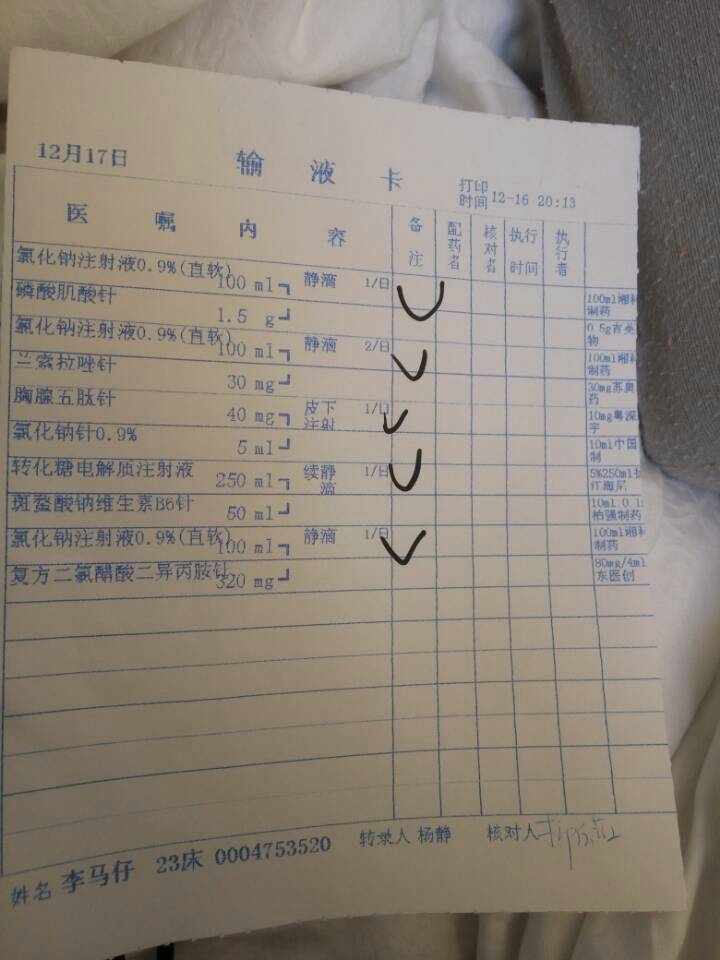 12月17日 输液卡 打印时间 12-16 20:13
医嘱内容 备注 配药者 核对者 执行时间 执行者
氯化钠注射液0.9%(直软) 100 ml 静滴 1/日 100ml湘 制药
磷酸肌酸针 1.5 g 0.5g吉 物
氯化钠注射液0.9%(直软) 100 ml 静滴 2/日 100ml湘 制药
兰索拉唑针 30 mg 30mg苏奥 药
胸腺五肽针 40 mg 皮下注射 1/日 10mg粤深 宇
氯化钠针0.9% 5 ml 10ml中国 制
转化糖电解质注射液 250 ml 续静滴 1/日 5%250ml 红海尼
斑蝥酸钠维生素B6针 50 ml 10ml:0.1 柏强制药
氯化钠注射液0.9%(直软) 100 ml 静滴 1/日 100ml湘 制药
复方二氯醋酸二异丙胺针 320 mg 80mg/4ml 东医创
姓名 李马仔 23床 0004753520 转录人 杨静 核对人